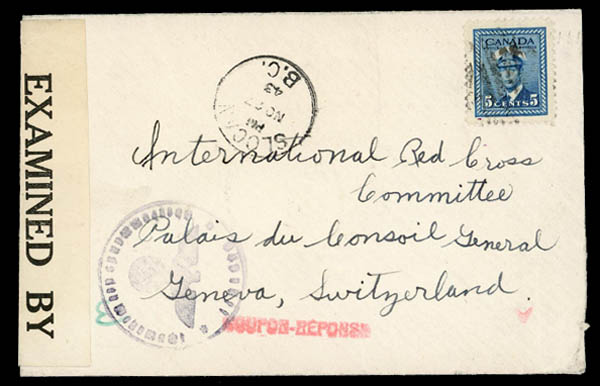 EXAMINED BY
CANADA
5 CENTS 5
SLOCAN
PM
NO 27
43
B.C.
International Red Cross
Committee
Palais du Consoil General
Geneva, Switzerland.
COUPON-RÉPONSE